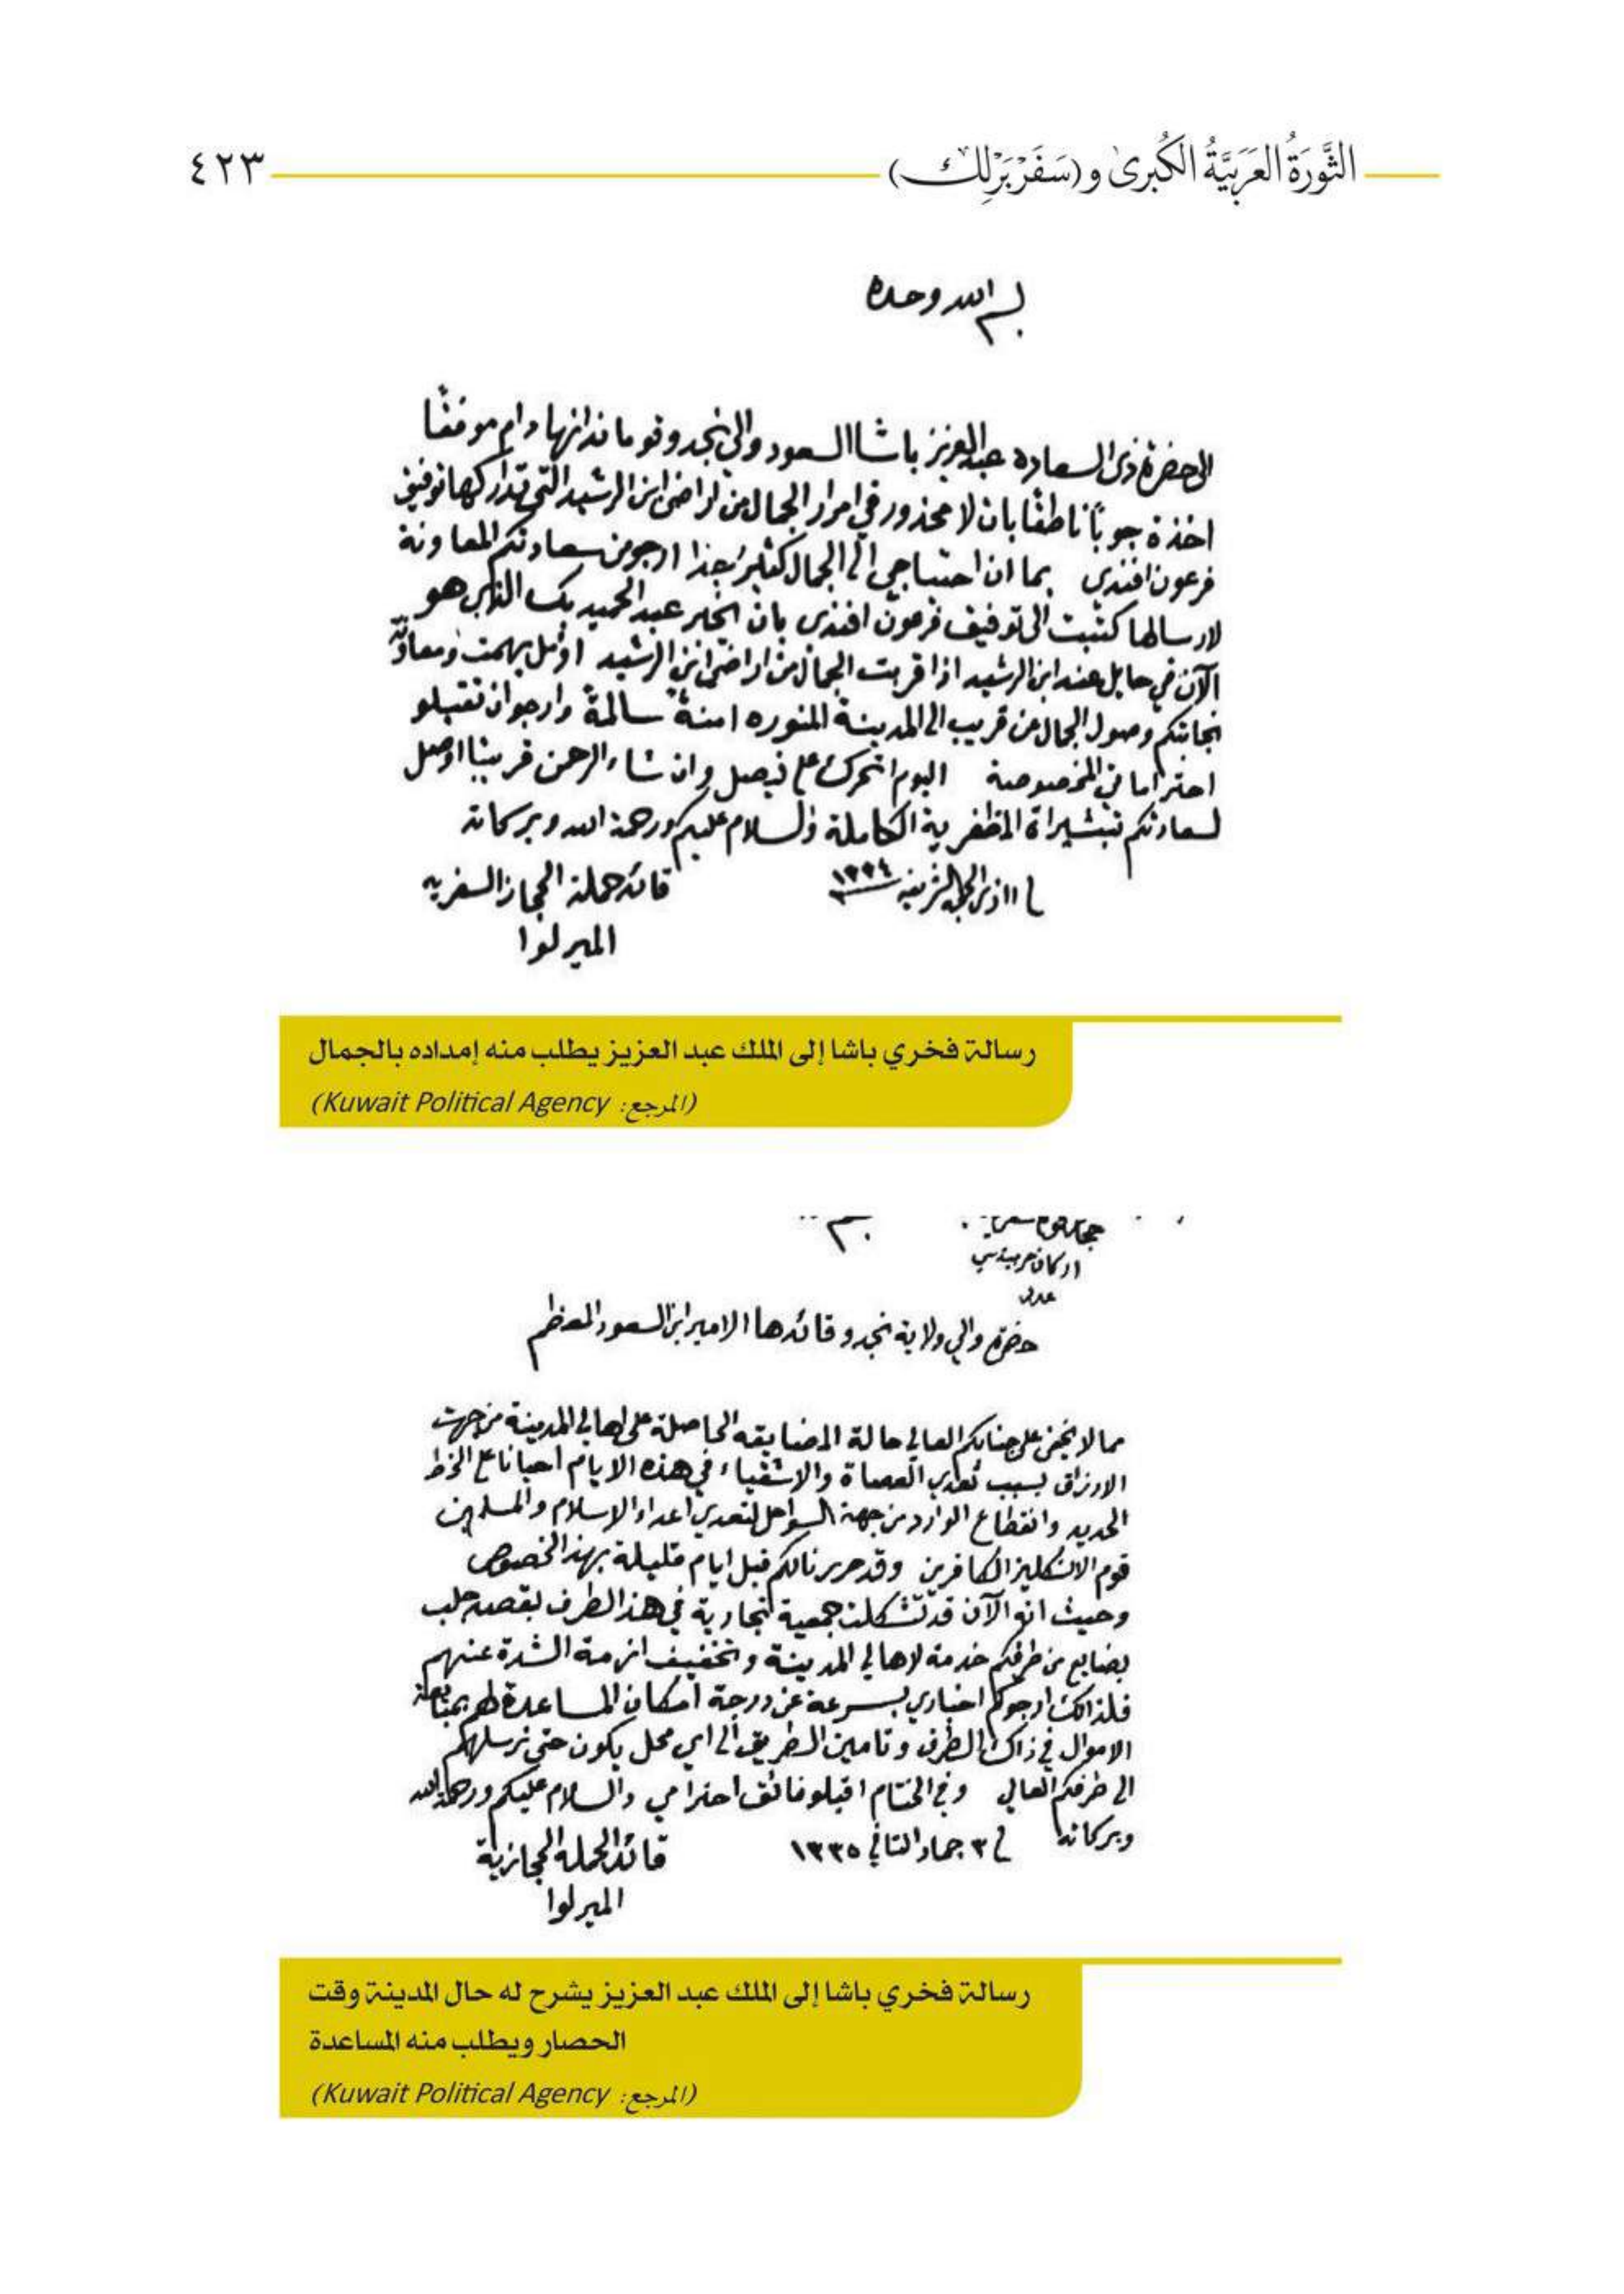 الثَّورَةُ العَرَبيَّةُ الكُبرىٰ و(سَفَرْبَرْلِك)
٤٢٣
بسم الله وحده
الى حضرة ذي السعاده عبدالعزيز باشا السعود والي نجد وقوماندانها دام موفقًا
اخذة جوبًا ناطقًا بان لا محذور في امرار الجمال من اراضي ابن الرشيد التي تداركها توفيق
فرعون افندي بما ان احتياجي الى الجمال كثير جدا ارجو من سعادتكم المعاونة
لارسالها كتبت الى توفيق فرعون افندي بان اخبر عبد الحميد بك الذي هو
الآن في حايل عند ابن الرشيد اذا قربت الجمال من اراضي ابن الرشيد اؤمل بهمت ومعاونة
نجابتكم وصول الجمال عن قريب الى المدينة المنوره امنةً سالمةً وارجو ان تقبلو
احتراماتي المخصوصة اليوم اتحرك على فيصل وان شاء الرحمن قريبا اوصل
لسعادتكم تبشيراة المظفرية الكاملة والسلام عليكم ورحمة الله وبركاته
في ١١ ذي الحجة الشريفه ١٣٣٤
قائد حملة الحجاز السفريه
الميرلوا
رسالة فخري باشا إلى الملك عبد العزيز يطلب منه إمداده بالجمال
(المرجع: Kuwait Political Agency)
بسم
حجاز قوه
اركان حربيه سي
عدد
حضرة والي ولاية نجد وقائدها الامير ابن السعود المعظم
مما لا يخفى على جنابكم العالي حالة المضايقه الحاصلة على اهالي المدينة من جهت
الارزاق بسبب تعدي العصاة والاشقياء في هذه الايام احيانا على الخط
الحديد وانقطاع الوارد من جهة السواحل لتعدي اعداء الاسلام والمسلمين
قوم الانكليز الكافرين وقد حررنا لكم قبل ايام قليلة بهذ الخصوص
وحيث انه الآن قد تشكلت جمعية تجارية في هذ الطرف بقصد جلب
بضايع من طرفكم خدمة لاهالي المدينة وتخفيف ازمة الشدة عنهم
فلذالك ارجوكم اخباري بسرعة عن درجة امكان المساعدة لهم بمبايعة
الاموال في ذاك الطرف وتامين الطريق الى اي محل يكون حتى نرسلهم
الى طرفكم العالي وفي الختام اقبلو فائق احترامي والسلام عليكم ورحمة الله
وبركاته
في ٣ جماد الثاني ١٣٣٥
قائد الحملة الحجازية
الميرلوا
رسالة فخري باشا إلى الملك عبد العزيز يشرح له حال المدينة وقت
الحصار ويطلب منه المساعدة
(المرجع: Kuwait Political Agency)